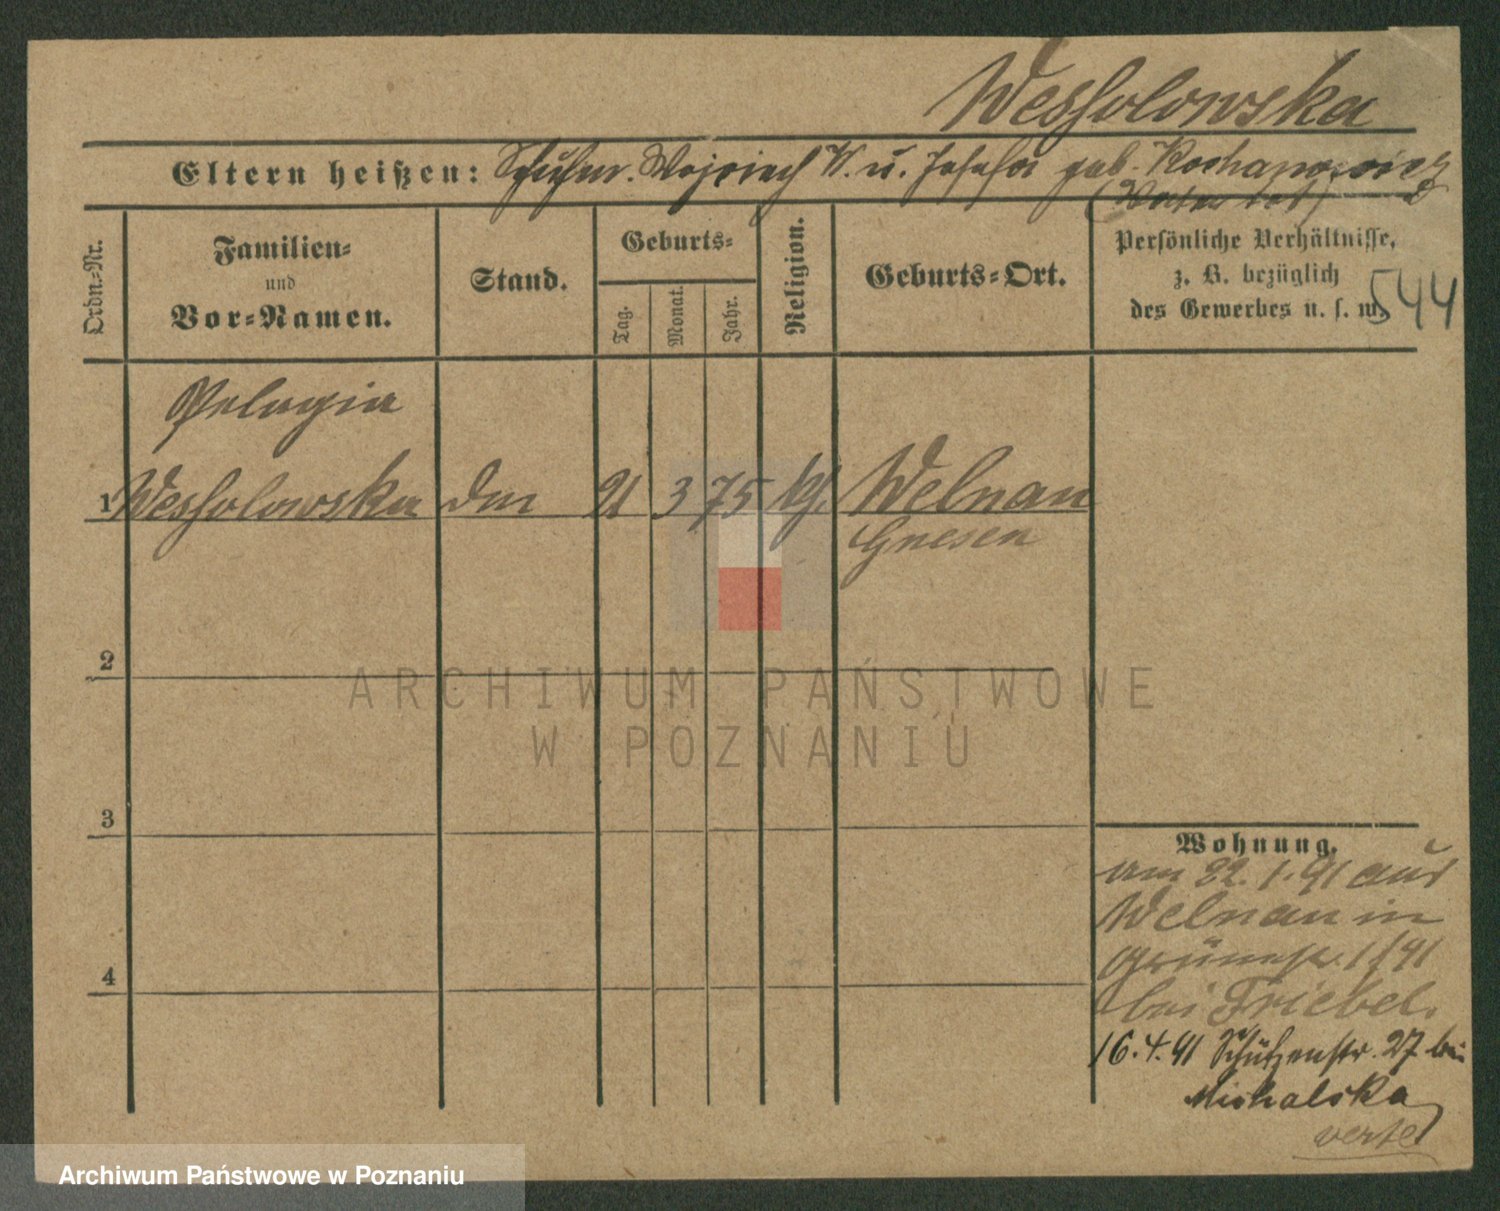 Wessolowska
Eltern heißen: Schuhm. Wojciech W. u. Josefa geb. Kochanowicz
(Vater tot)
Ordn.-Nr.
Familien-
und
Vor-Namen.
Stand.
Geburts-
Tag.
Monat.
Jahr.
Religion.
Geburts-Ort.
Persönliche Verhältnisse,
z. B. bezüglich
des Gewerbes u. s. w.
544
Pelagia
1 Wessolowska 21 3 75 Welnau
Gnesen
2
3
4
Wohnung.
am 22. 1. 91 aus
Welnau in
Grünestr. 1
bei Friebel.
16. 4. 91 Schützenstr. 27 bei
Michalska
verte
ARCHIWUM PAŃSTWOWE
W POZNANIU
Archiwum Państwowe w Poznaniu